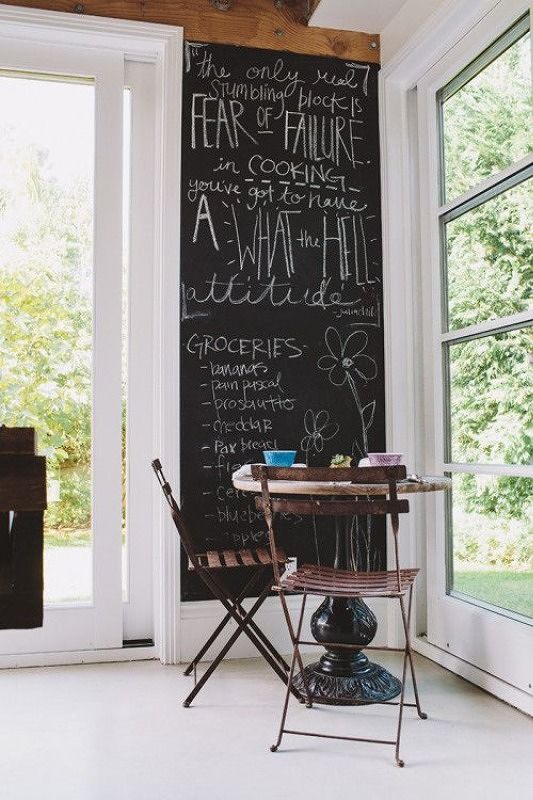 the only real
stumbling block is
FEAR OF FAILURE.
in COOKING
you've got to have
A WHAT the HELL
attitude
GROCERIES
- bananas
- pain pascal
- prosciutto
- cheddar
-
-
-
- blueberries
- apples